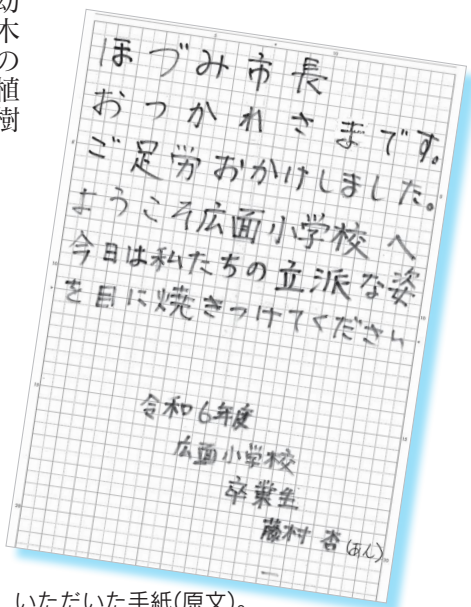 幼木の植樹
ほづみ市長
おつかれさまです。
ご足労おかけしました。
ようこそ広面小学校へ
今日は私たちの立派な姿
を目に焼きつけてください
令和6年度
広面小学校
卒業生
藤村 杏(あん)
いただいた手紙(原文)。